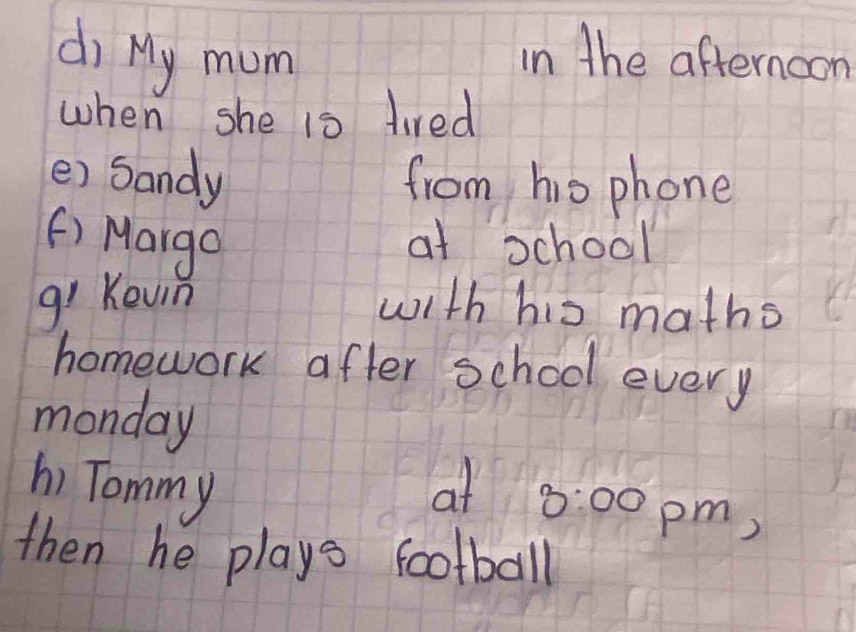 d) My mum in the afternoon
when she is tired
e) Sandy from his phone
f) Margo at school
g) Kevin with his maths
homework after school every
monday
h) Tommy at 3:00 pm,
then he plays football